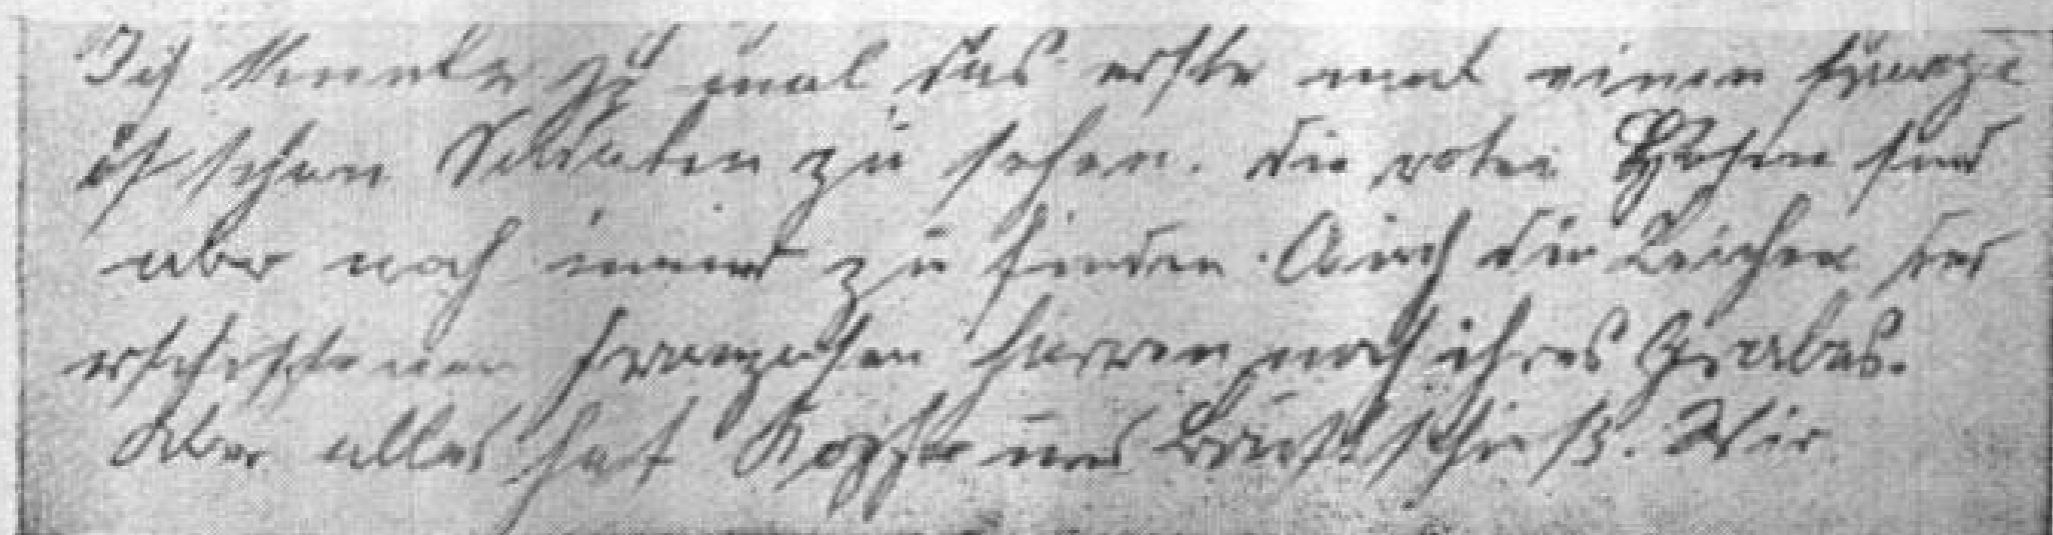 Ich konnte zu mal das erste mal einen franzö
ösischen Soldaten zu sehen. Die roten Hosen sind
aber noch immer zu finden. Auch die Leichen der
erschossenen Franzosen harren noch ihres Grabes.
Aber alles hat Kopf und Brustschuß. Wir